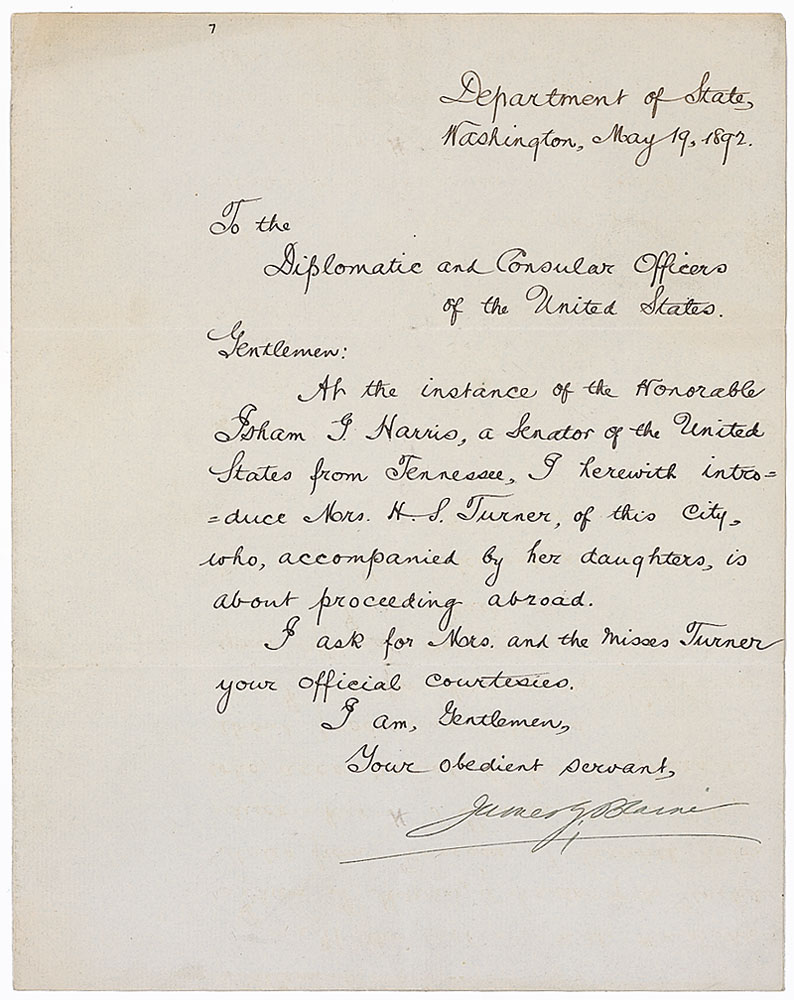 7
Department of State,
Washington, May 19, 1892.
To the
Diplomatic and Consular Officers
of the United States.
Gentlemen:
At the instance of the Honorable
Isham G. Harris, a Senator of the United
States from Tennessee, I herewith intro=
=duce Mrs. H. S. Turner, of this City,
who, accompanied by her daughters, is
about proceeding abroad.
I ask for Mrs. and the Misses Turner
your official courtesies.
I am, Gentlemen,
Your obedient servant,
James G. Blaine